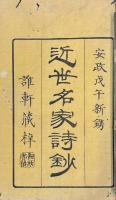 安政戊午新鐫
近世名家詩鈔
誰軒藏梓